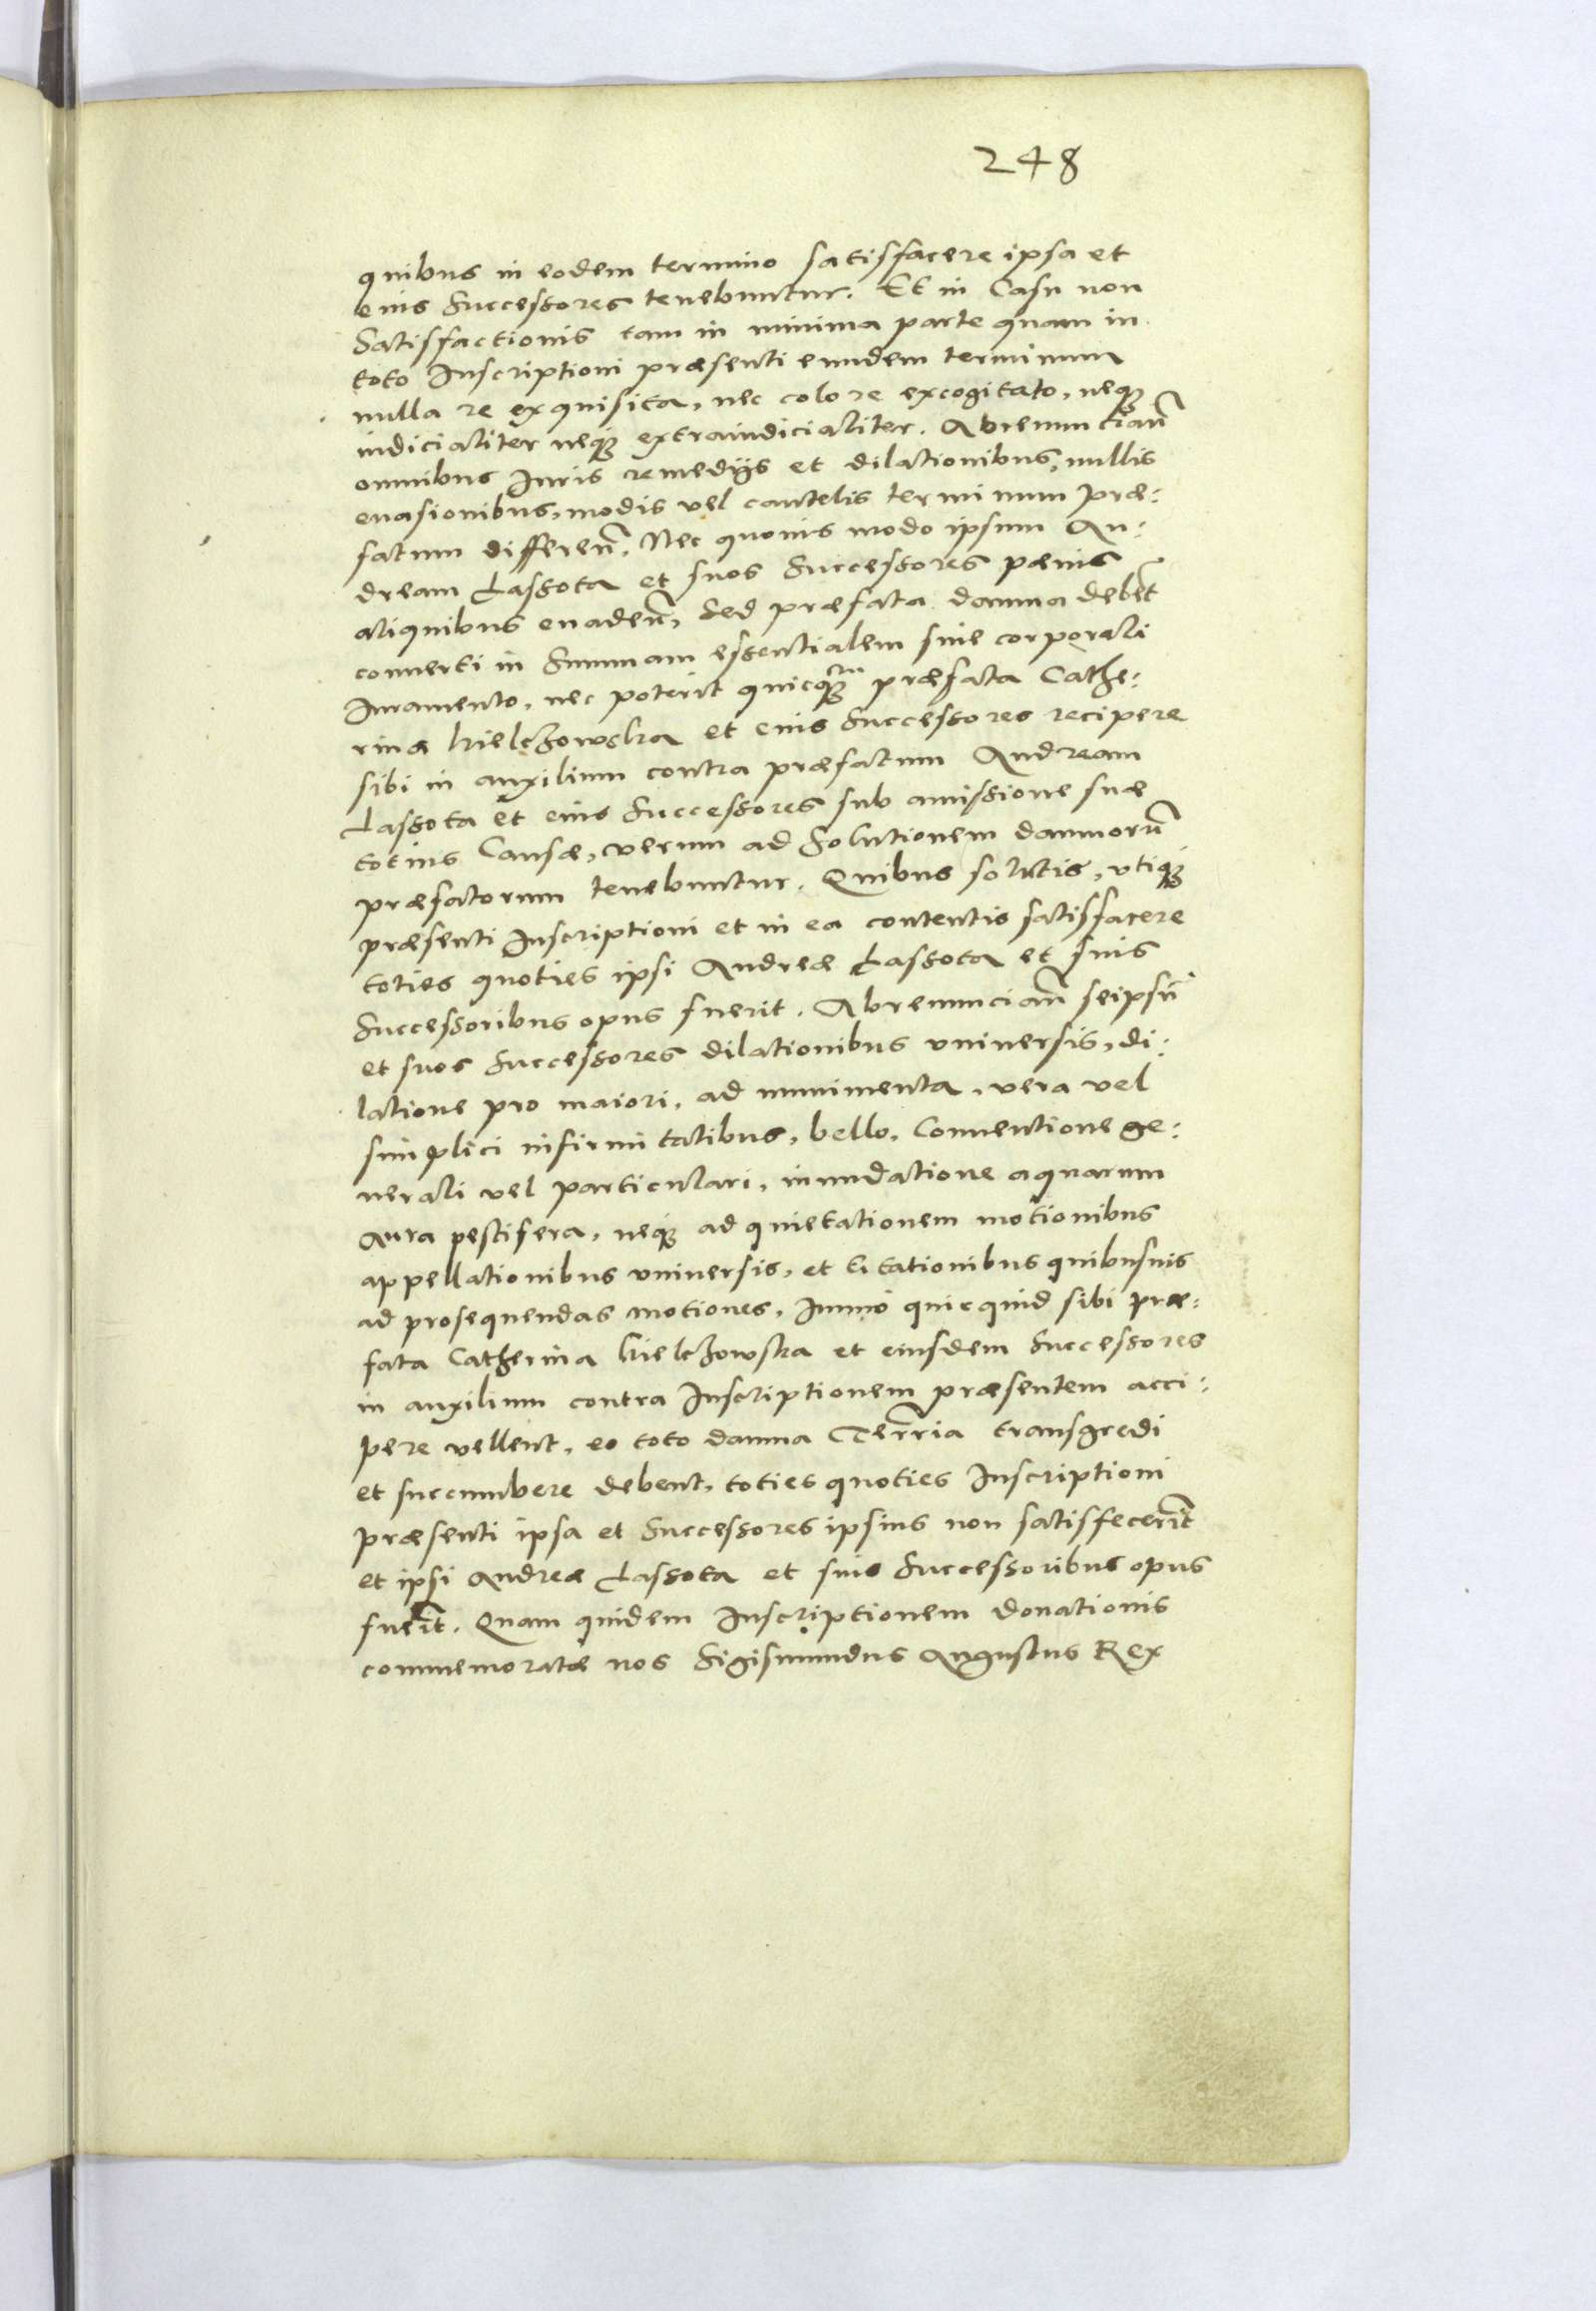 248
quibus in eodem termino satisfacere ipsa et
eius Successores tenebuntur. Et in Casu non
Satisfactionis tam in minima parte quam in
toto Inscriptioni præsenti eundem terminum
nulla re exquisita, nec colore excogitato, neq꜄
iudicialiter neq꜄ extraiudicialiter. Abrenuncian̄
omnibus Iuris remedijs et dilationibus, nullis
euasionibus, modis vel cautelis terminum præ:
fatum differen̄. Nec quouis modo ipsum An:
dream Lassota et suos Successores pænis
aliquibus euaden̄, Sed præfata damna deben̄t
conuerti in Summam essentialem sine corporali
Iuramento, nec poterit quicq꜄m præfata Cathe:
rina Kielczowska et eius Successores recipere
sibi in auxilium contra præfatum Andream
Lassota et eius Successores sub amissione suæ
totius Causæ, verum ad Solutionem damnorū
præfatorum tenebuntur. Quibus solutis, vtiq꜄
præsenti Inscriptioni et in ea contentis satisfacere
toties quoties ipsi Andreæ Lassota et suis
Successoribus opus fuerit. Abrenuncian̄ seipsū
et suos Successores dilationibus vniuersis, di:
latione pro maiori, ad munimenta, vera vel
simplici infirmitatibus, bello, Conuentione ge:
nerali vel particulari, inundatione aquarum
Aura pestifera, neq꜄ ad quietationem motionibus
appellationibus vniuersis, et Citationibus quibusuis
ad prosequendas motiones, Immo quicquid sibi præ:
fata Catherina Kielczowska et eiusdem Successores
in auxilium contra Inscriptionem præsentem acci:
pere vellent, eo toto damna Ter̄ria transgredi
et succumbere debent, toties quoties Inscriptioni
præsenti ipsa et Successores ipsius non satisfecerīt
et ipsi Andreæ Lassota et suis Successoribus opus
fuerīt. Quam quidem Inscriptionem donationis
commemoratæ nos Sigismundus Augustus Rex